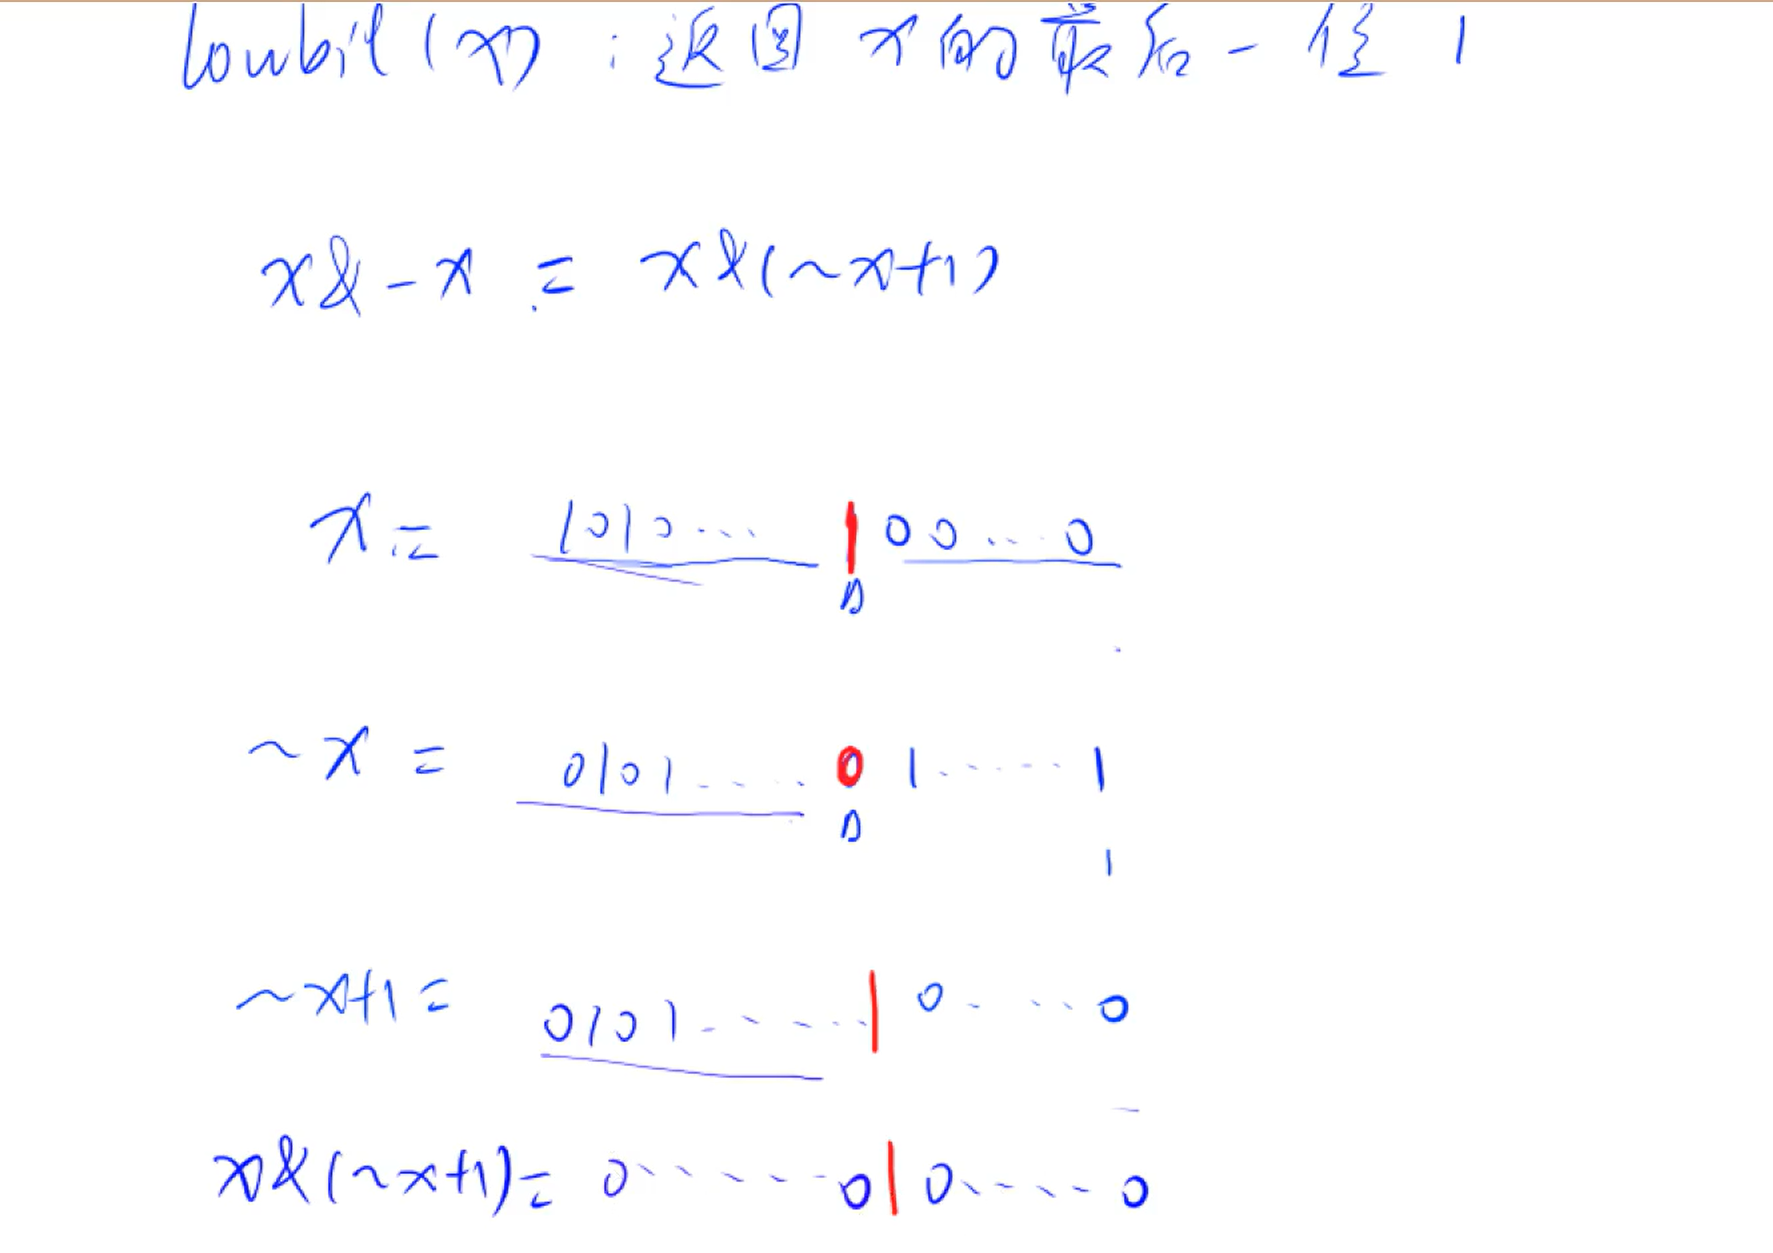 lowbit(x) : 返回 x的最后一位 1
x&-x = x&(~x+1)
x = 1010... 1 00...0
~x = 0101.... 0 1......1
1
~x+1 = 0101...... 1 0.....0
x&(~x+1) = 0......0 1 0.....0